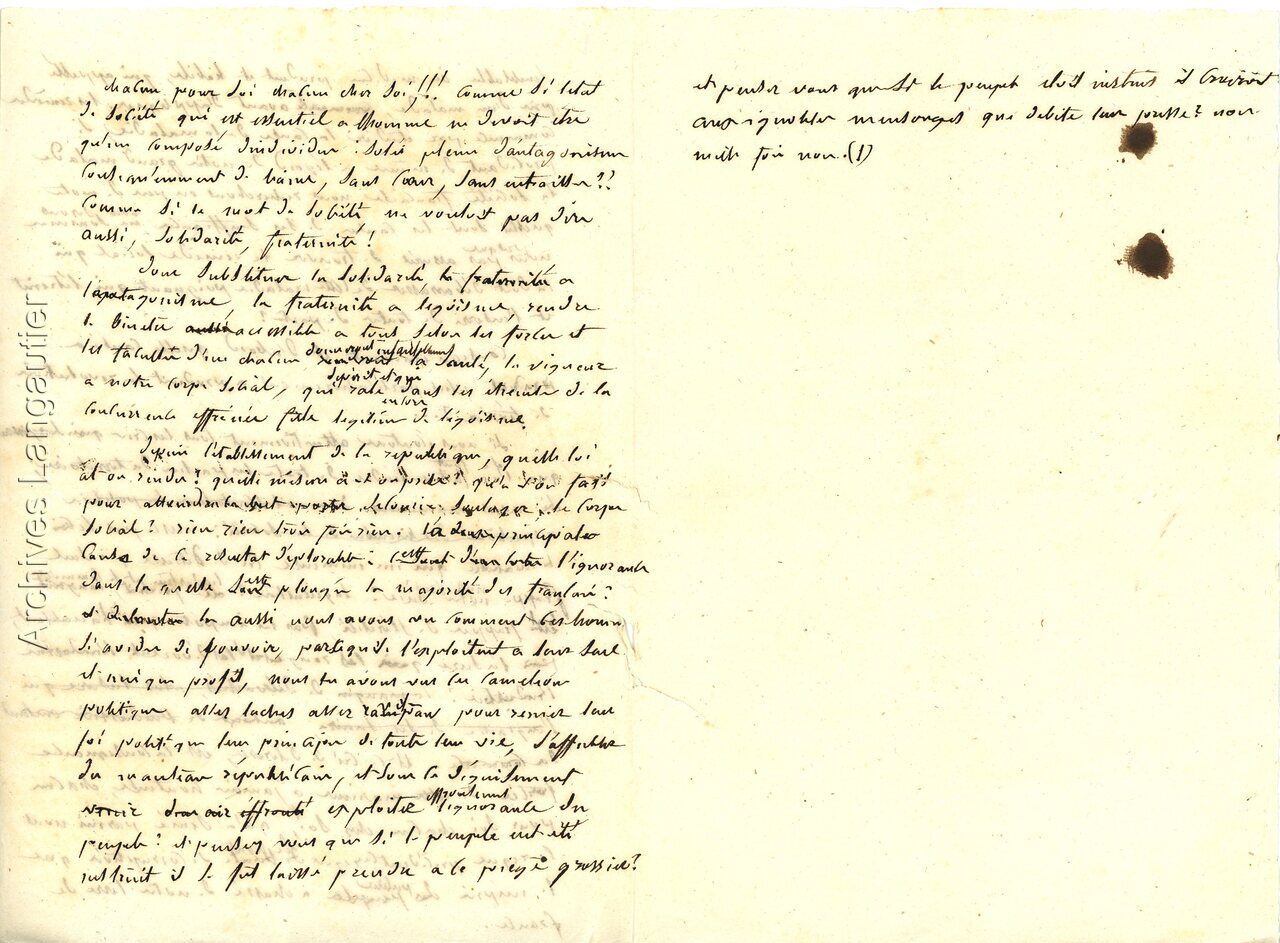 chacun pour soi chacun chez soi!!! comme si letat
de société qui est essentiel a lhomme ne devoit être
qu'un composé dindividus isolés pleins dantagonisme
consequemment de haine, sans cœur, sans entrailles??
comme si le mot de société ne vouloit pas dire
aussi, solidarité, fraternité!
donc substituer la solidarité, la fraternité a
lantagonisme, la fraternité a legoisme, rendre
le bien etre accessible a tous selon les forces et
les facultés d'un chacun la santé, la vigueur
a notre corps social, qui dépérit et qui rale encore dans les étreintes de la
concurrence effrénée fille legitime de légoisme.
depuis l'établissement de la republique, quelle loi
a t on rendue? quelle mesure a t on prise? qu'a t'on fait
pour soulager le corps
social? rien rien trois fois rien. la principale
cause de ce resultat déplorable: c'est l'ignorance
dans la quelle est plongée la majorité des français?
la aussi nous avons vu comment ces hommes
si avides de pouvoir, l'exploitent a leur seul
et unique profit, nous les avons vus ces cameleons
politiques assez laches assez pour renier leur
foi politique leurs principes de toute leur vie, s'affubler
du manteau républicain, et sous ce déguisement
exploiter effrontement l'ignorance du
peuple? et pensez vous que si le peuple eut été
instruit il se fut laissé prendre a ce piège grossier?
et pensez vous que si le peuple etoit instruit il croiroit
aux ignobles mensonges que debite leur presse? non
mille fois non. (1)
Archives Langautier